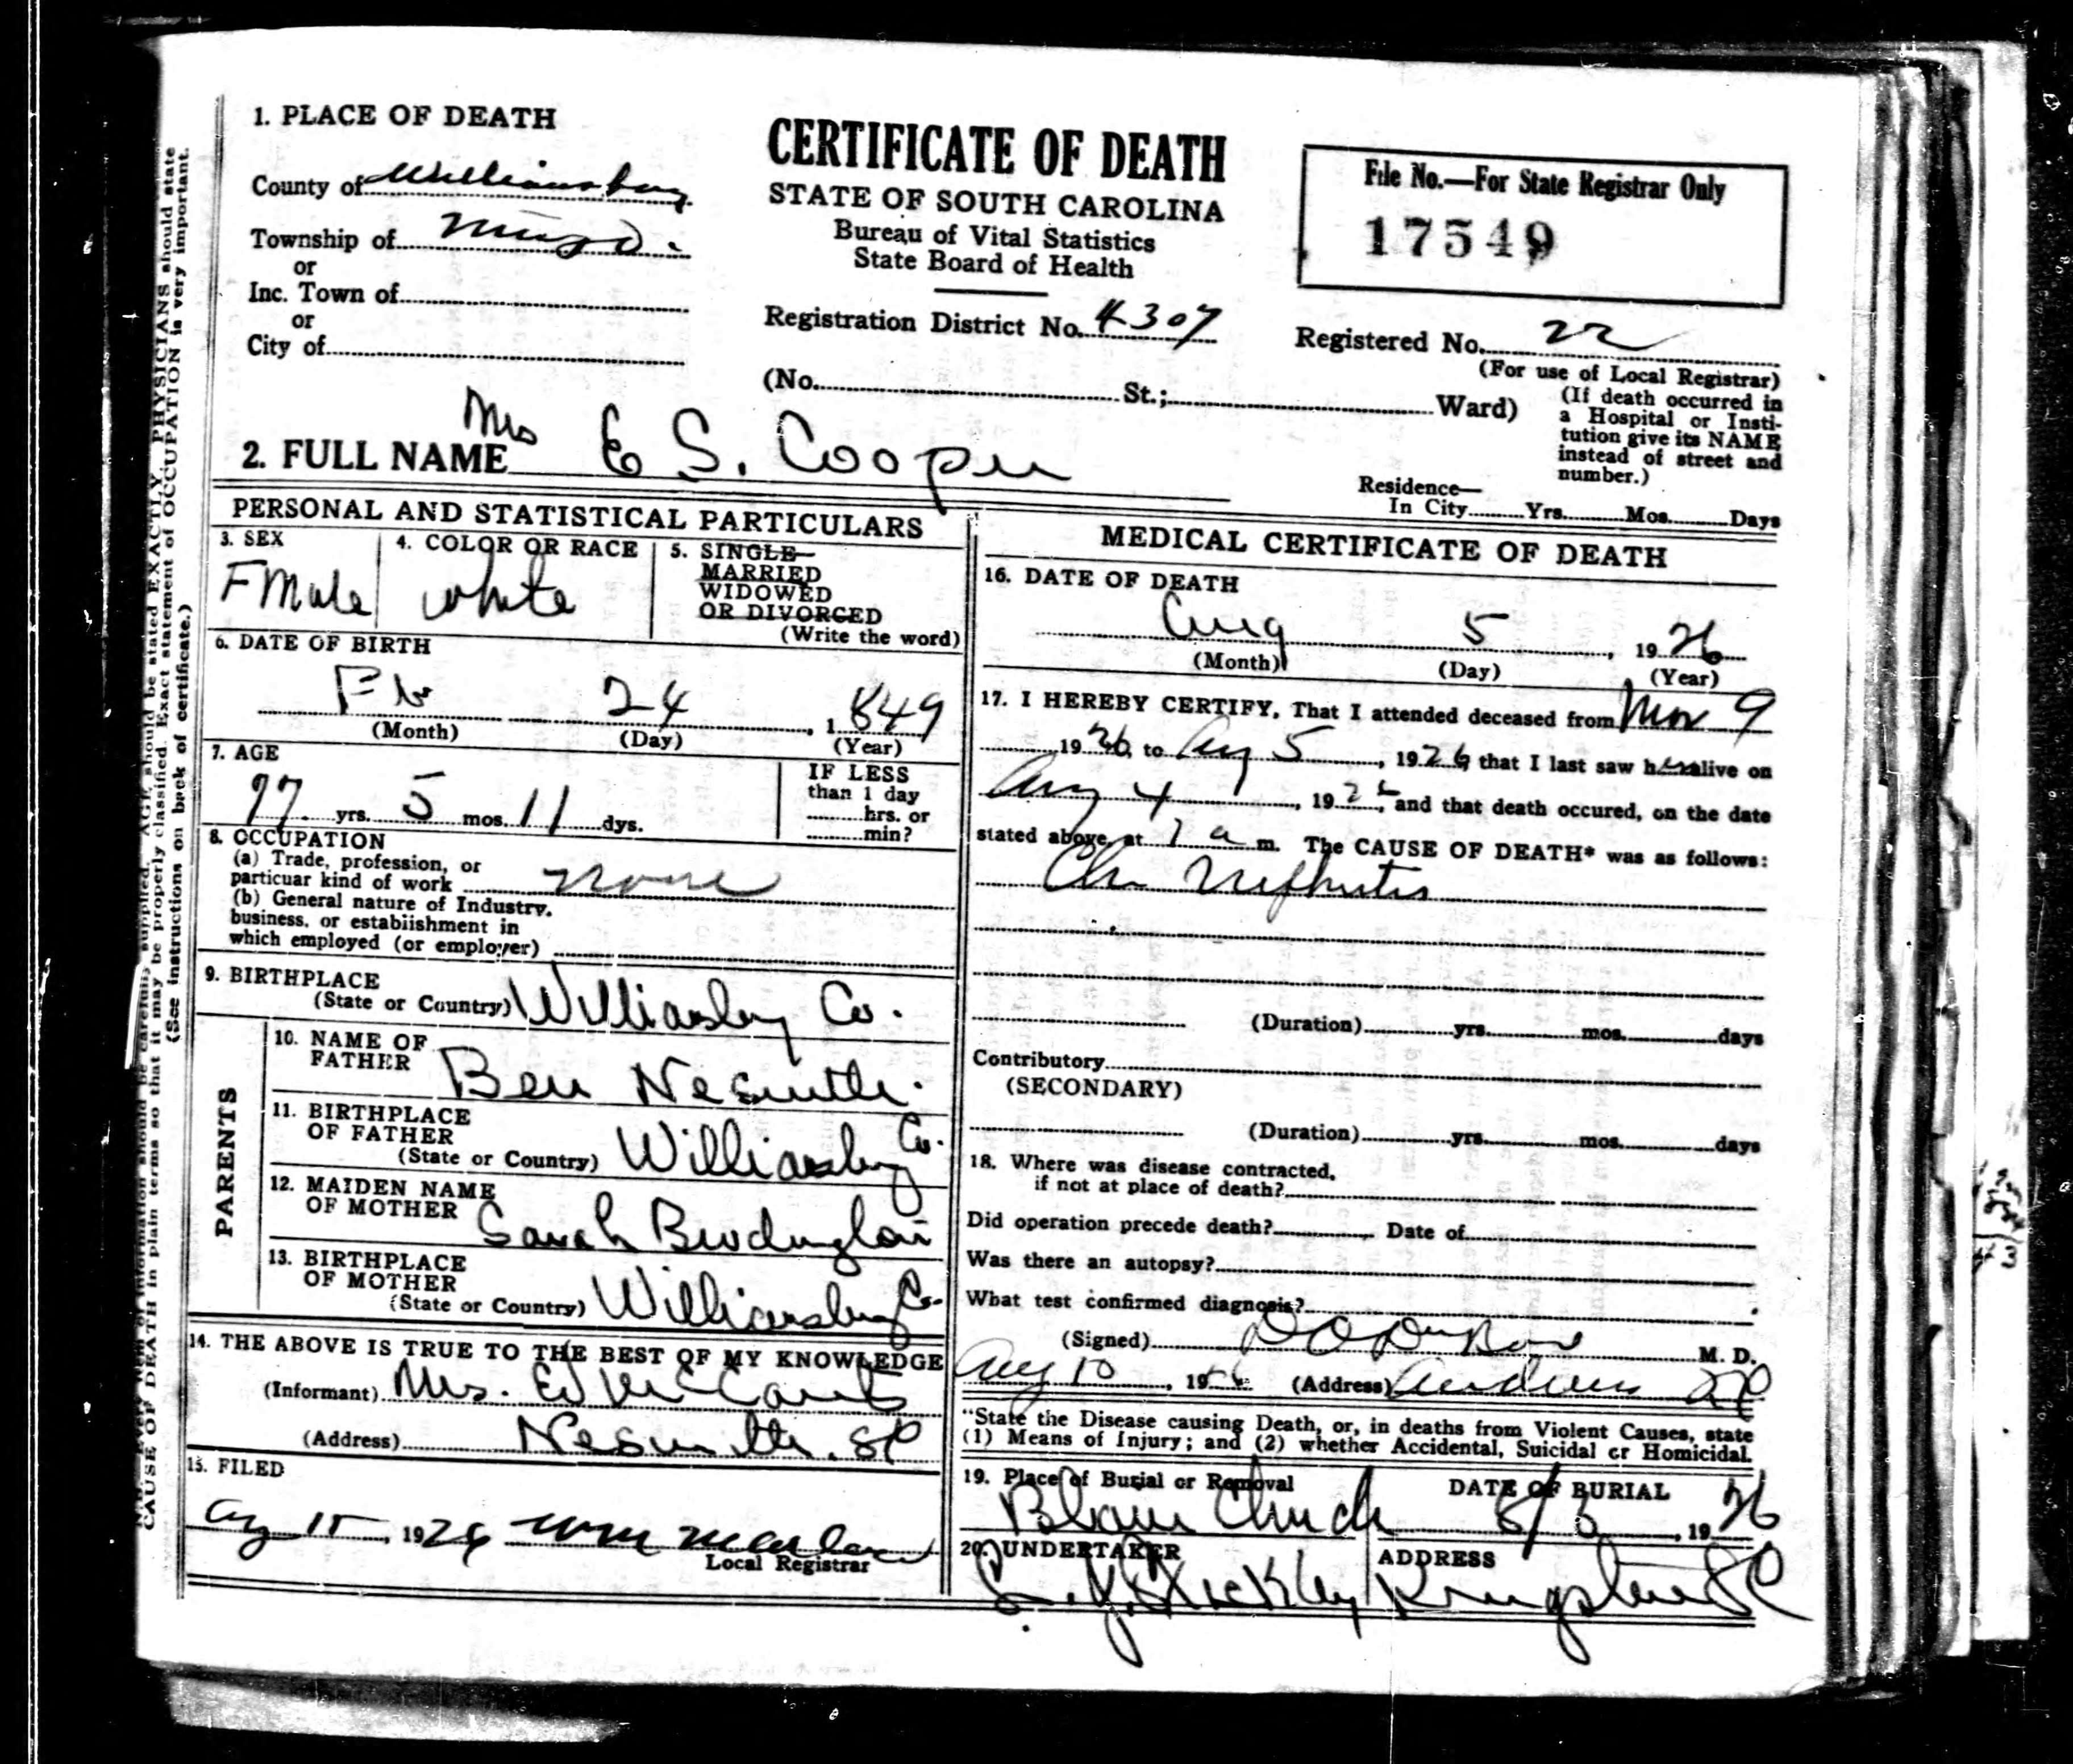 1. PLACE OF DEATH
County of Williamsburg
Township of
or
Inc. Town of
or
City of
CERTIFICATE OF DEATH
STATE OF SOUTH CAROLINA
Bureau of Vital Statistics
State Board of Health
Registration District No. 4307
File No.—For State Registrar Only
17549
Registered No. 22
(For use of Local Registrar)
(No. St.; Ward)
(If death occurred in
a Hospital or Insti-
tution give its NAME
instead of street and
number.)
2. FULL NAME Mrs E S. Cooper
Residence—
In City Yrs. Mos. Days
PERSONAL AND STATISTICAL PARTICULARS
3. SEX
FMale
4. COLOR OR RACE
white
5. SINGLE
MARRIED
WIDOWED
OR DIVORCED
(Write the word)
6. DATE OF BIRTH
Feb 24, 1849
(Month) (Day) (Year)
7. AGE
77 yrs. 5 mos. 11 dys.
IF LESS
than 1 day
hrs. or
min?
8. OCCUPATION
(a) Trade, profession, or
particuar kind of work none
(b) General nature of Industry,
business, or establishment in
which employed (or employer)
9. BIRTHPLACE
(State or Country) Williamsburg Co.
PARENTS
10. NAME OF
FATHER Ben Nesmith.
11. BIRTHPLACE
OF FATHER
(State or Country) Williamsburg Co.
12. MAIDEN NAME
OF MOTHER Sarah
13. BIRTHPLACE
OF MOTHER
(State or Country) Williamsburg Co.
14. THE ABOVE IS TRUE TO THE BEST OF MY KNOWLEDGE
(Informant) Mrs. Ed McCants
(Address) Nesmith, SC
15. FILED
Aug 15, 1926
Local Registrar
MEDICAL CERTIFICATE OF DEATH
16. DATE OF DEATH
Aug 5, 1926
(Month) (Day) (Year)
17. I HEREBY CERTIFY, That I attended deceased from 9
1926, to Aug 5, 1926, that I last saw her alive on
Aug 4, 1926, and that death occured, on the date
stated above, at a m. The CAUSE OF DEATH* was as follows:
Chr Nephritis
(Duration) yrs. mos. days
Contributory
(SECONDARY)
(Duration) yrs. mos. days
18. Where was disease contracted,
if not at place of death?
Did operation precede death? Date of
Was there an autopsy?
What test confirmed diagnosis?
(Signed) M. D.
Aug 10, 19 (Address) Andrews SC
"State the Disease causing Death, or, in deaths from Violent Causes, state
(1) Means of Injury; and (2) whether Accidental, Suicidal or Homicidal.
19. Place of Burial or Removal
Church
DATE OF BURIAL
8/6, 1926
20. UNDERTAKER
Stuckley
ADDRESS
Kingstree SC
CAUSE OF DEATH in plain terms so that it may be properly classified. Exact statement of OCCUPATION is very important.
(See instructions on back of certificate.)